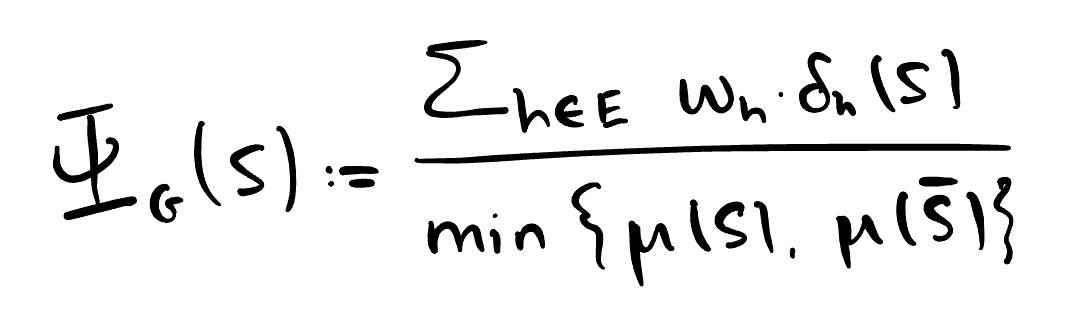 Ψ_G(S) := \frac{\sum_{h∈E} w_h · δ_h(S)}{\min\{μ(S), μ(\bar{S})\}}